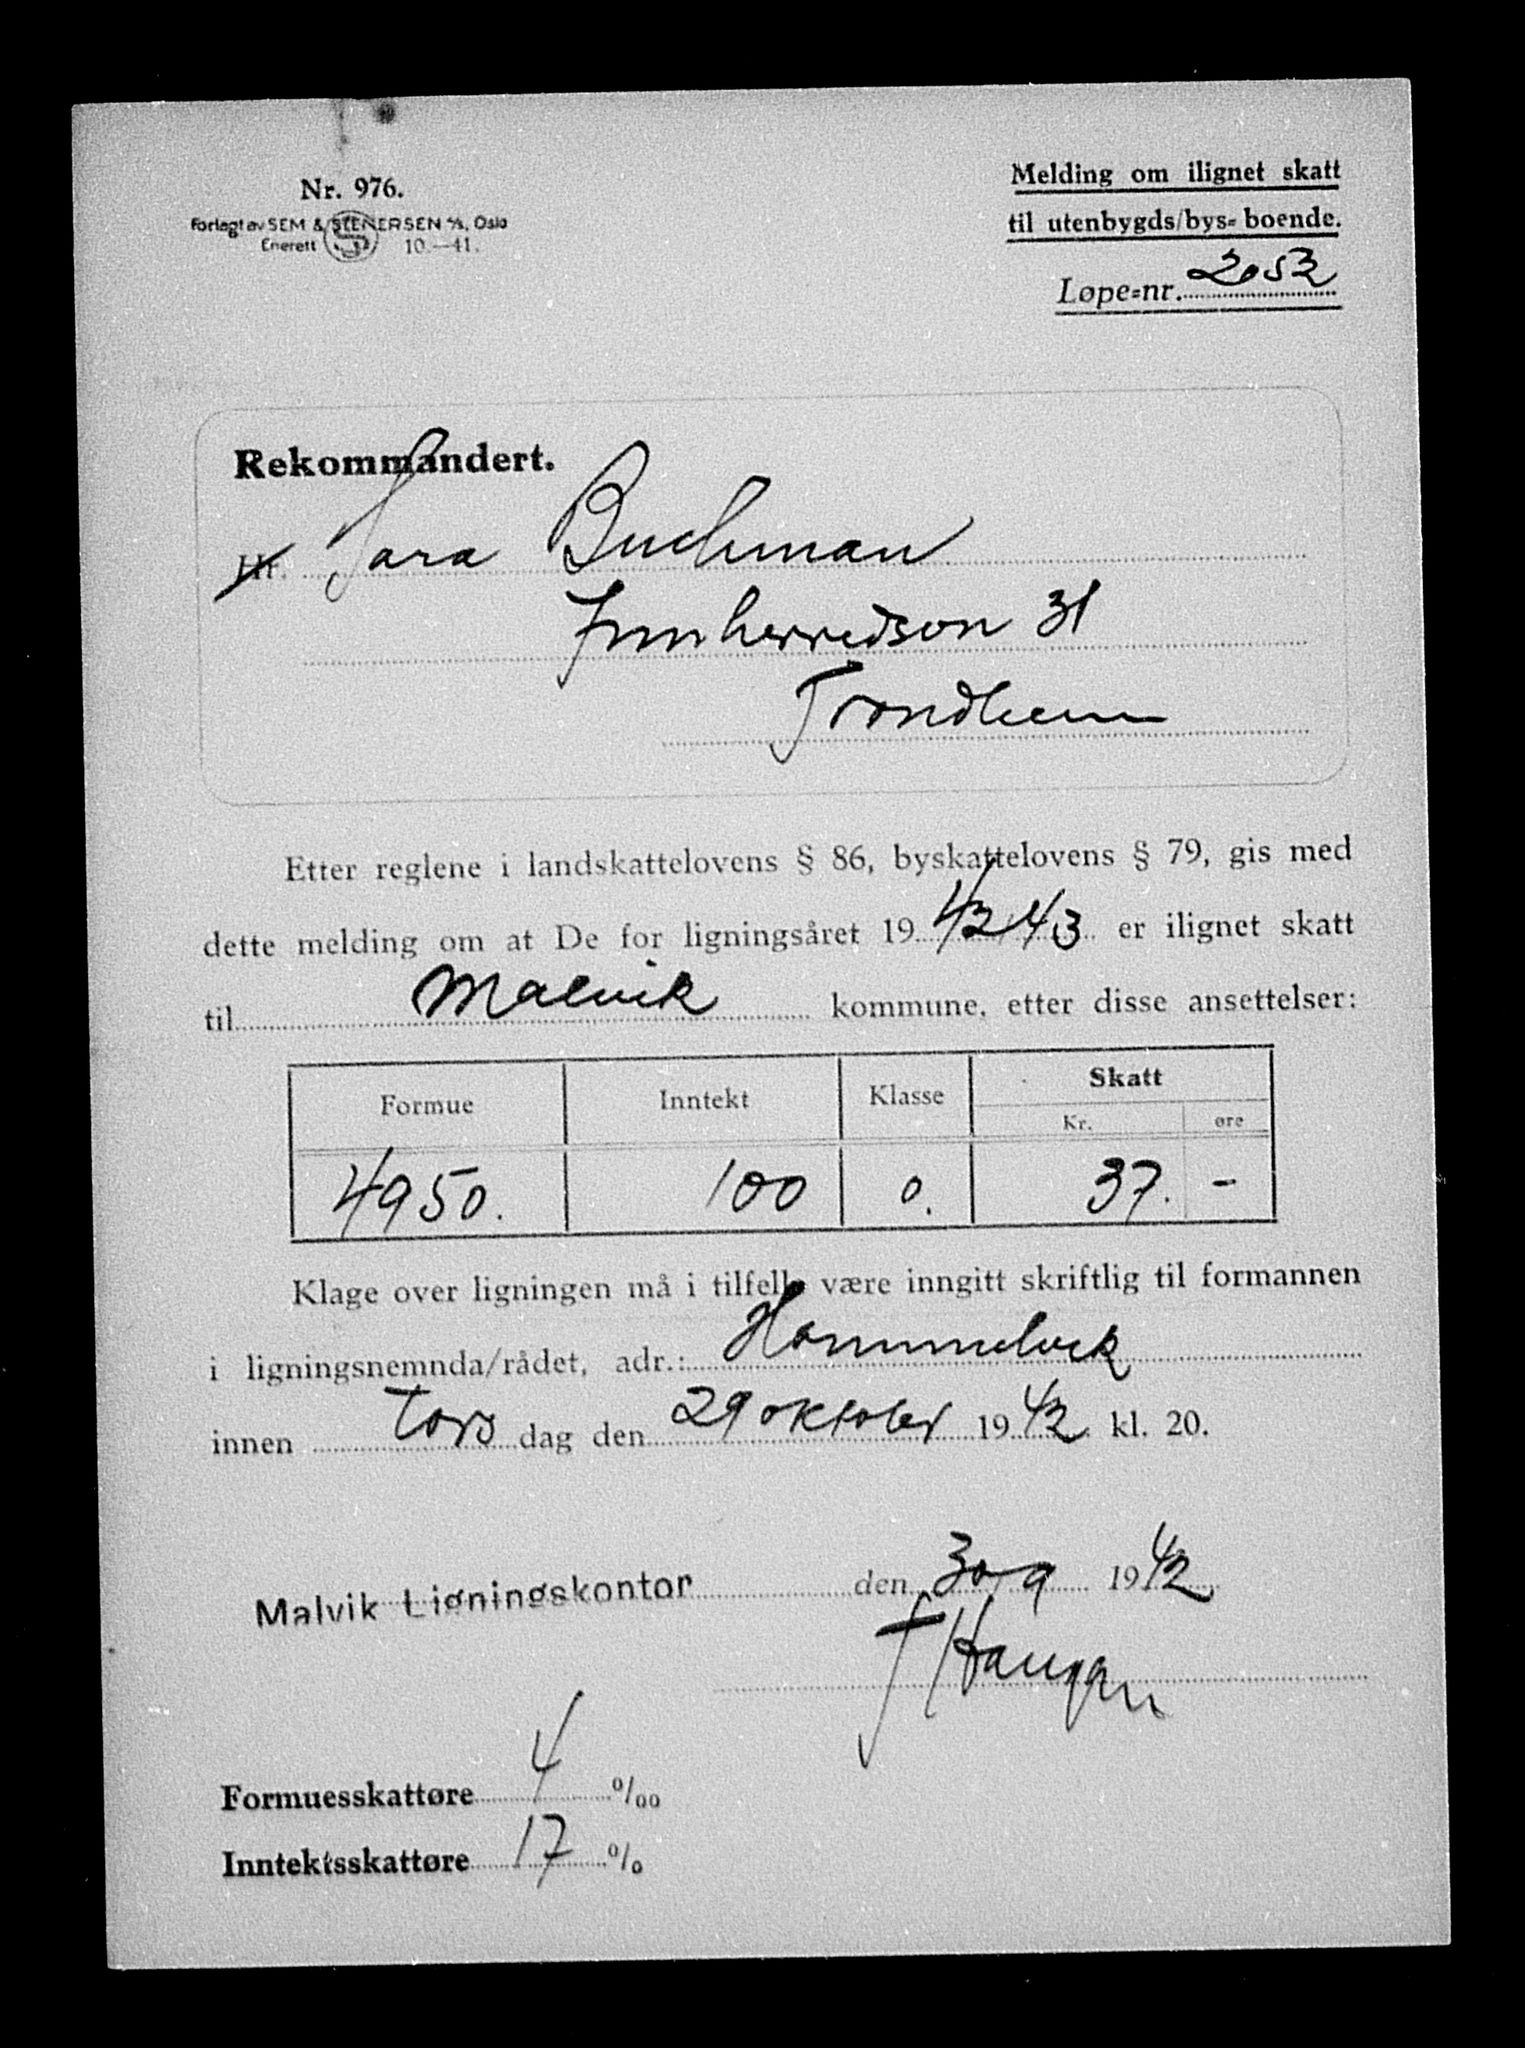 Nr. 976.
Forlagt av SEM & STENERSEN A/S, Oslo
Enerett S 10.—41.
Melding om ilignet skatt
til utenbygds/bys-boende.
Løpe-nr. 2053
Rekommandert.
Hr. Sara Buchman
Innherredsvn 31
Trondheim
Etter reglene i landskattelovens § 86, byskattelovens § 79, gis med
dette melding om at De for ligningsåret 1942/43 er ilignet skatt
til Malvik kommune, etter disse ansettelser:
Formue Inntekt Klasse Skatt
Kr. øre
4950. 100 0. 37. -
Klage over ligningen må i tilfelle være inngitt skriftlig til formannen
i ligningsnemnda/rådet, adr.: Hommelvik
innen tors dag den 29 oktober 1942 kl. 20.
Malvik Ligningskontor den 30/9 1942
J Haugan
Formuesskattøre 4 ‰
Inntektsskattøre 17 %